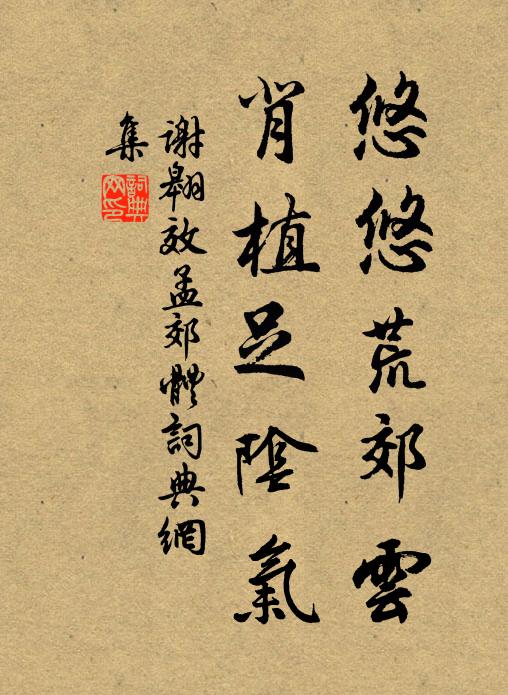 悠悠荒郊雲
背植足陰氣
謝翱效孟郊體詞典網
集
詞典網印